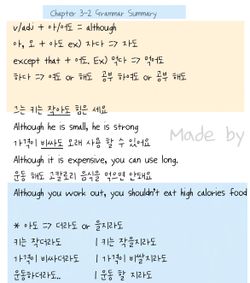 Chapter 3-2 Grammar Summary
v/adj + 아/어도 = although
아, 오 + 아도 ex) 자다 => 자도
except that + 어도. Ex) 먹다 => 먹어도
하다 => 여도 or 해도 공부 하여도 or 공부 해도
그는 키는 작아도 힘은 세요
Although he is small, he is strong
가격이 비싸도 오래 사용 할 수 있어요
Made by
Although it is expensive, you can use long.
운동 해도 고칼로리 음식을 먹으면 안돼요
Although you work out, you shouldn't eat high calories food
* 아도 => 더라도 or 을지라도
키는 작더라도 | 키는 작을지라도
가격이 비싸더라도 | 가격이 비쌀지라도
운동하더라도.. | 운동 할 지라도